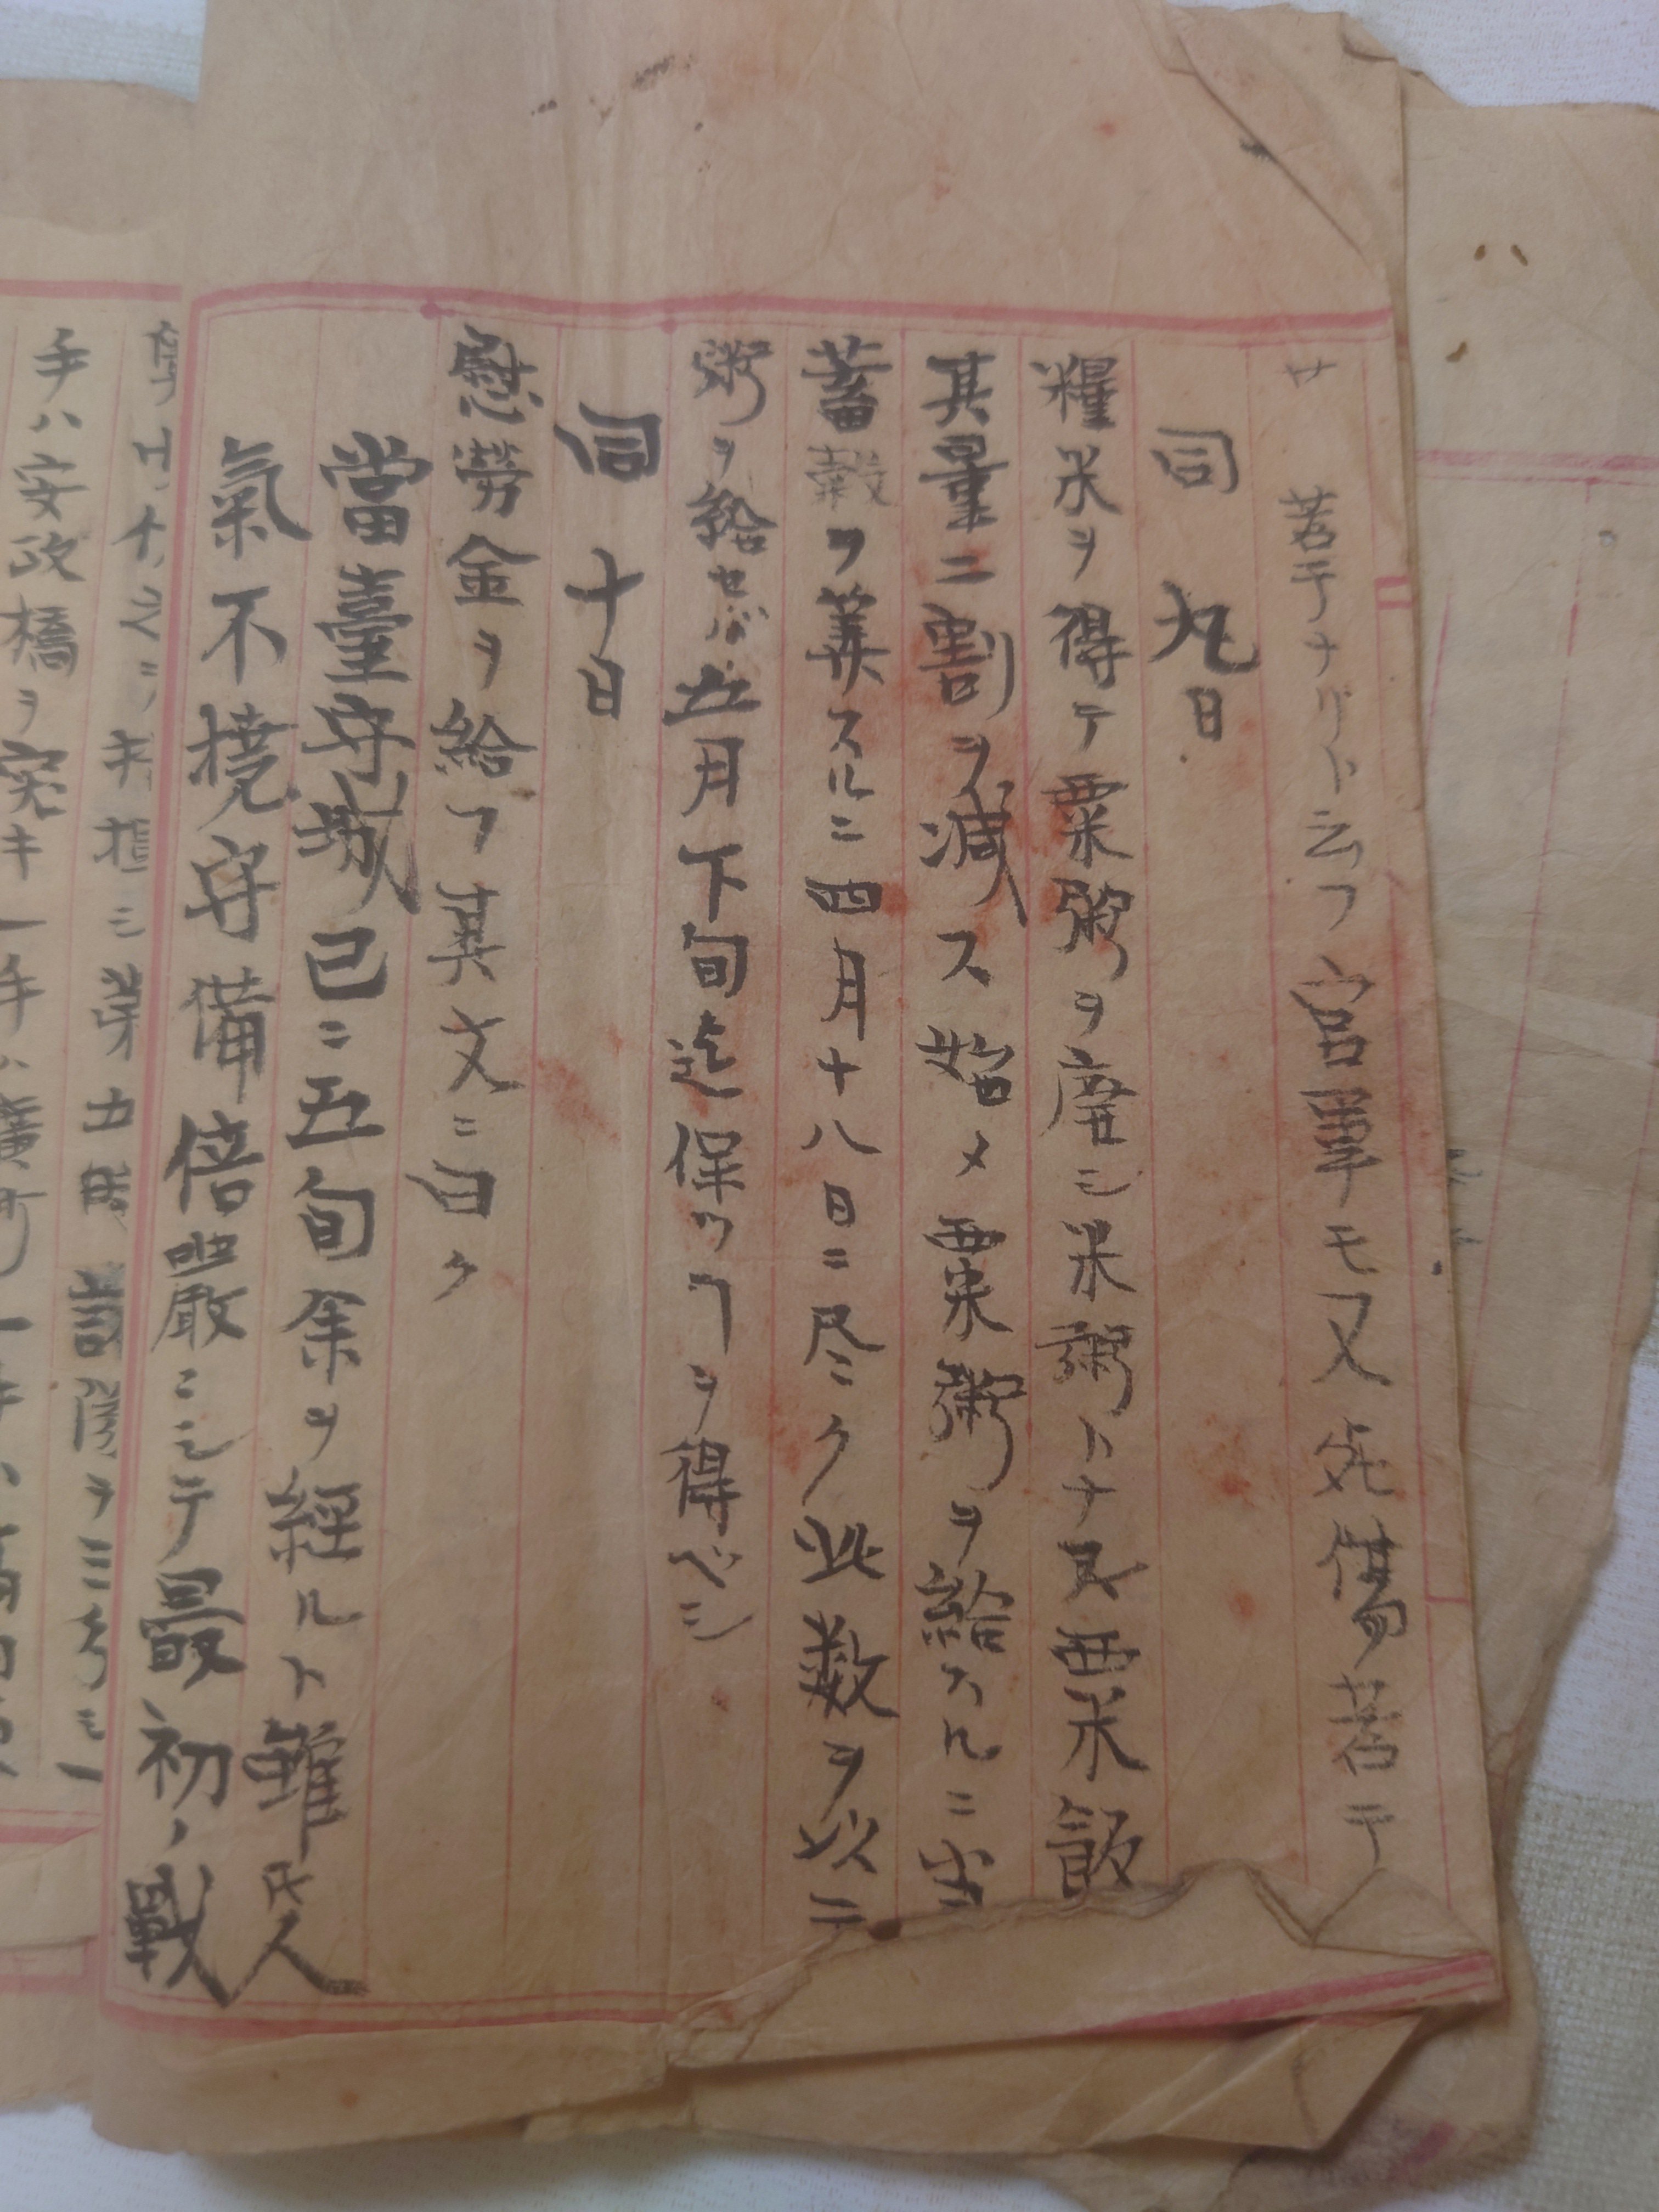 廿 若干ナリト云フ官軍モ又死傷若干
同九日
糧米ヲ得テ粟粥ヲ廃シ米粥トナス粟米飯
其量二割ヲ減ス始メ粟粥ヲ給スルニ当
蓄穀ヲ算スルニ四月十八日ニ尽ク此数ヲ以テ
粥ヲ給セバ五月下旬迄保ツヿヲ得ベシ
同十日
慰勞金ヲ給フ其文ニ曰ク
當臺守城已ニ五旬余ヲ経ルト雖氏人
氣不撓守備倍嚴ニシテ最初ノ戰
ヲ三分シ一
手ハ安政橋ヲ突キ一手ハ廣町